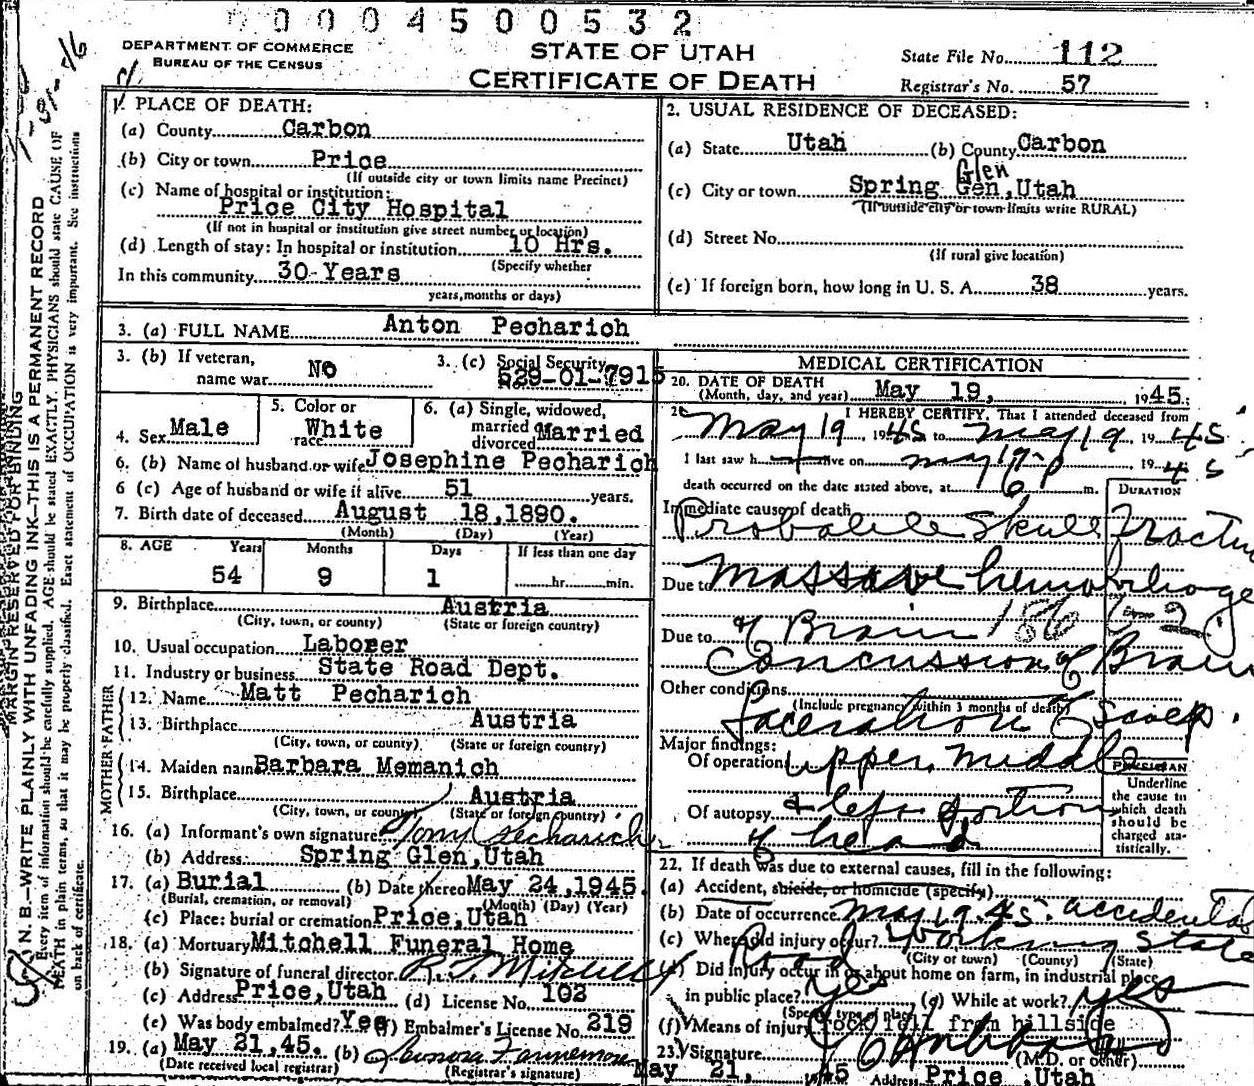 0004500532
DEPARTMENT OF COMMERCE
BUREAU OF THE CENSUS
STATE OF UTAH
CERTIFICATE OF DEATH
State File No. 112
Registrar's No. 57
MARGIN RESERVED FOR BINDING
N. B.—WRITE PLAINLY WITH UNFADING INK—THIS IS A PERMANENT RECORD
Every item of information should be carefully supplied. AGE should be stated EXACTLY. PHYSICIANS should state CAUSE OF
DEATH in plain terms, so that it may be properly classified. Exact statement of OCCUPATION is very important. See instructions
on back of certificate.
1. PLACE OF DEATH:
(a) County Carbon
(b) City or town Price
(If outside city or town limits name Precinct)
(c) Name of hospital or institution:
Price City Hospital
(If not in hospital or institution give street number or location)
(d) Length of stay: In hospital or institution 10 Hrs.
(Specify whether
In this community 30 Years
years, months or days)
2. USUAL RESIDENCE OF DECEASED:
(a) State Utah (b) County Carbon
Glen
(c) City or town Spring Gen, Utah
(If outside city or town limits write RURAL)
(d) Street No.
(If rural give location)
(e) If foreign born, how long in U. S. A. 38 years.
3. (a) FULL NAME Anton Pecharich
3. (b) If veteran, name war No
3. (c) Social Security 529-01-7915
4. Sex Male
5. Color or race White
6. (a) Single, widowed, married divorced Married
6. (b) Name of husband or wife Josephine Pecharich
6 (c) Age of husband or wife if alive 51 years.
7. Birth date of deceased August 18, 1890.
(Month) (Day) (Year)
8. AGE Years Months Days If less than one day
54 9 1 hr. min.
9. Birthplace Austria
(City, town, or county) (State or foreign country)
10. Usual occupation Laborer
11. Industry or business State Road Dept.
FATHER
12. Name Matt Pecharich
13. Birthplace Austria
(City, town, or county) (State or foreign country)
MOTHER
14. Maiden name Barbara Memanich
15. Birthplace Austria
(City, town, or county) (State or foreign country)
16. (a) Informant's own signature Tony Pecharich
(b) Address Spring Glen, Utah
17. (a) Burial (b) Date thereof May 24, 1945.
(Burial, cremation, or removal) (Month) (Day) (Year)
(c) Place: burial or cremation Price, Utah
18. (a) Mortuary Mitchell Funeral Home
(b) Signature of funeral director Mitchell
(c) Address Price, Utah (d) License No. 102
(e) Was body embalmed? Yes (f) Embalmer's License No. 219
19. (a) May 21, 45. (b)
(Date received local registrar) (Registrar's signature)
MEDICAL CERTIFICATION
20. DATE OF DEATH May 19, 1945.
(Month, day, and year)
21. I HEREBY CERTIFY, That I attended deceased from
May 19 1945 to May 19, 1945
I last saw h alive on May 19, 1945
death occurred on the date stated above, at 6 p m.
DURATION
Immediate cause of death
Probable Skull Fracture
Due to Massive hemorrhage
Due to of Brain 186
Concussion of Brain
Other conditions
(Include pregnancy within 3 months of death)
Laceration of Scalp.
Major findings:
Of operation upper middle
Of autopsy & left portion
of head
PHYSICIAN
Underline
the cause to
which death
should be
charged sta-
tistically.
22. If death was due to external causes, fill in the following:
(a) Accident, suicide, or homicide (specify)
(b) Date of occurrence May 19, 45. accidental
(c) Where did injury occur? Working State
(City or town) (County) (State)
Road
(d) Did injury occur in or about home on farm, in industrial place,
in public place? yes (e) While at work? yes
(Specify type of place)
(f) Means of injury rock fell from hillside
23. Signature (M.D. or other)
May 21, 45 Address Price, Utah